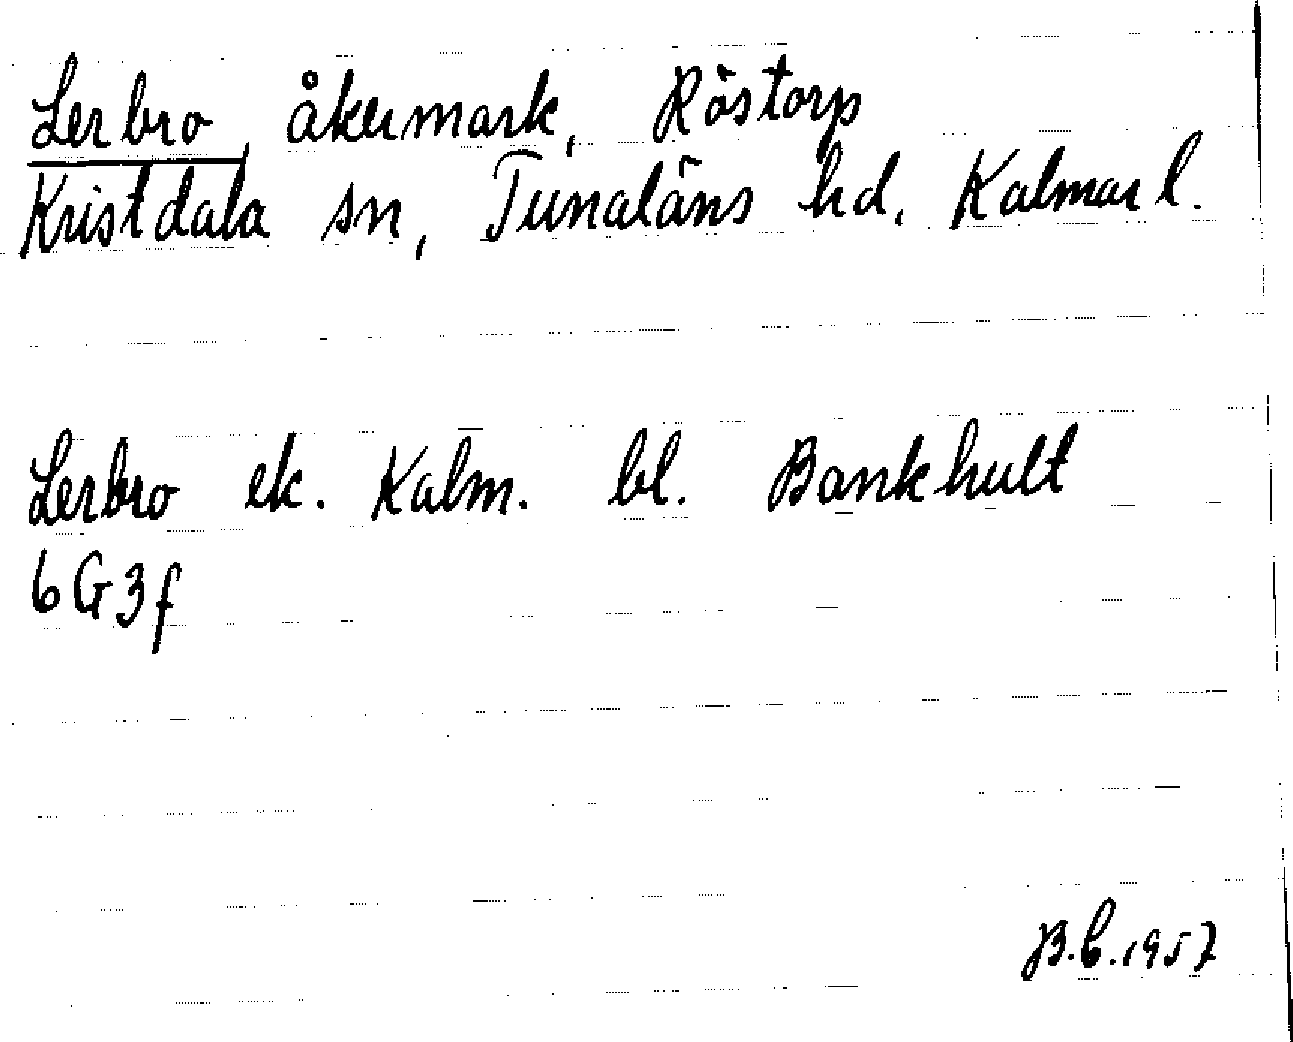 Lerbro, åkermark, Röstorp
Kristdala sn, Tunaläns hd. Kalmar l.
Lerbro ek. Kalm. bl. Bankhult
6G3f
B.C. 1957